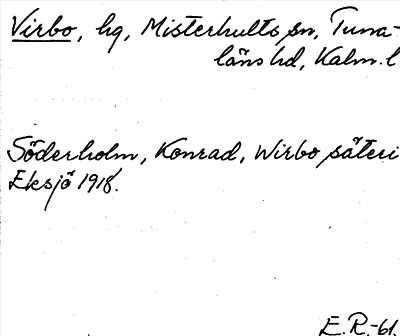 Virbo, hg, Misterhults sn, Tuna-
läns hd, Kalm. l
Söderholm, Konrad, Wirbo säteri
Eksjö 1918.
E.R.-61.